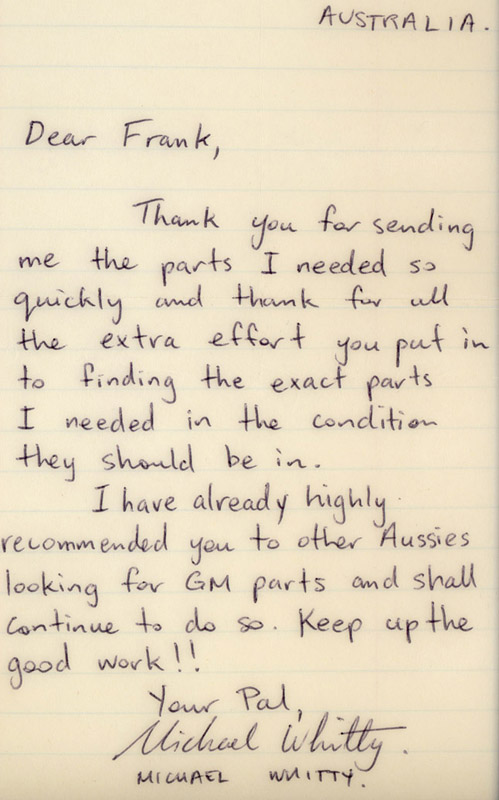 AUSTRALIA.
Dear Frank,
Thank you for sending
me the parts I needed so
quickly and thank for all
the extra effort you put in
to finding the exact parts
I needed in the condition
they should be in.
I have already highly
recommended you to other Aussies
looking for GM parts and shall
continue to do so. Keep up the
good work!!
Your Pal,
Michael Whitty.
MICHAEL WHITTY.